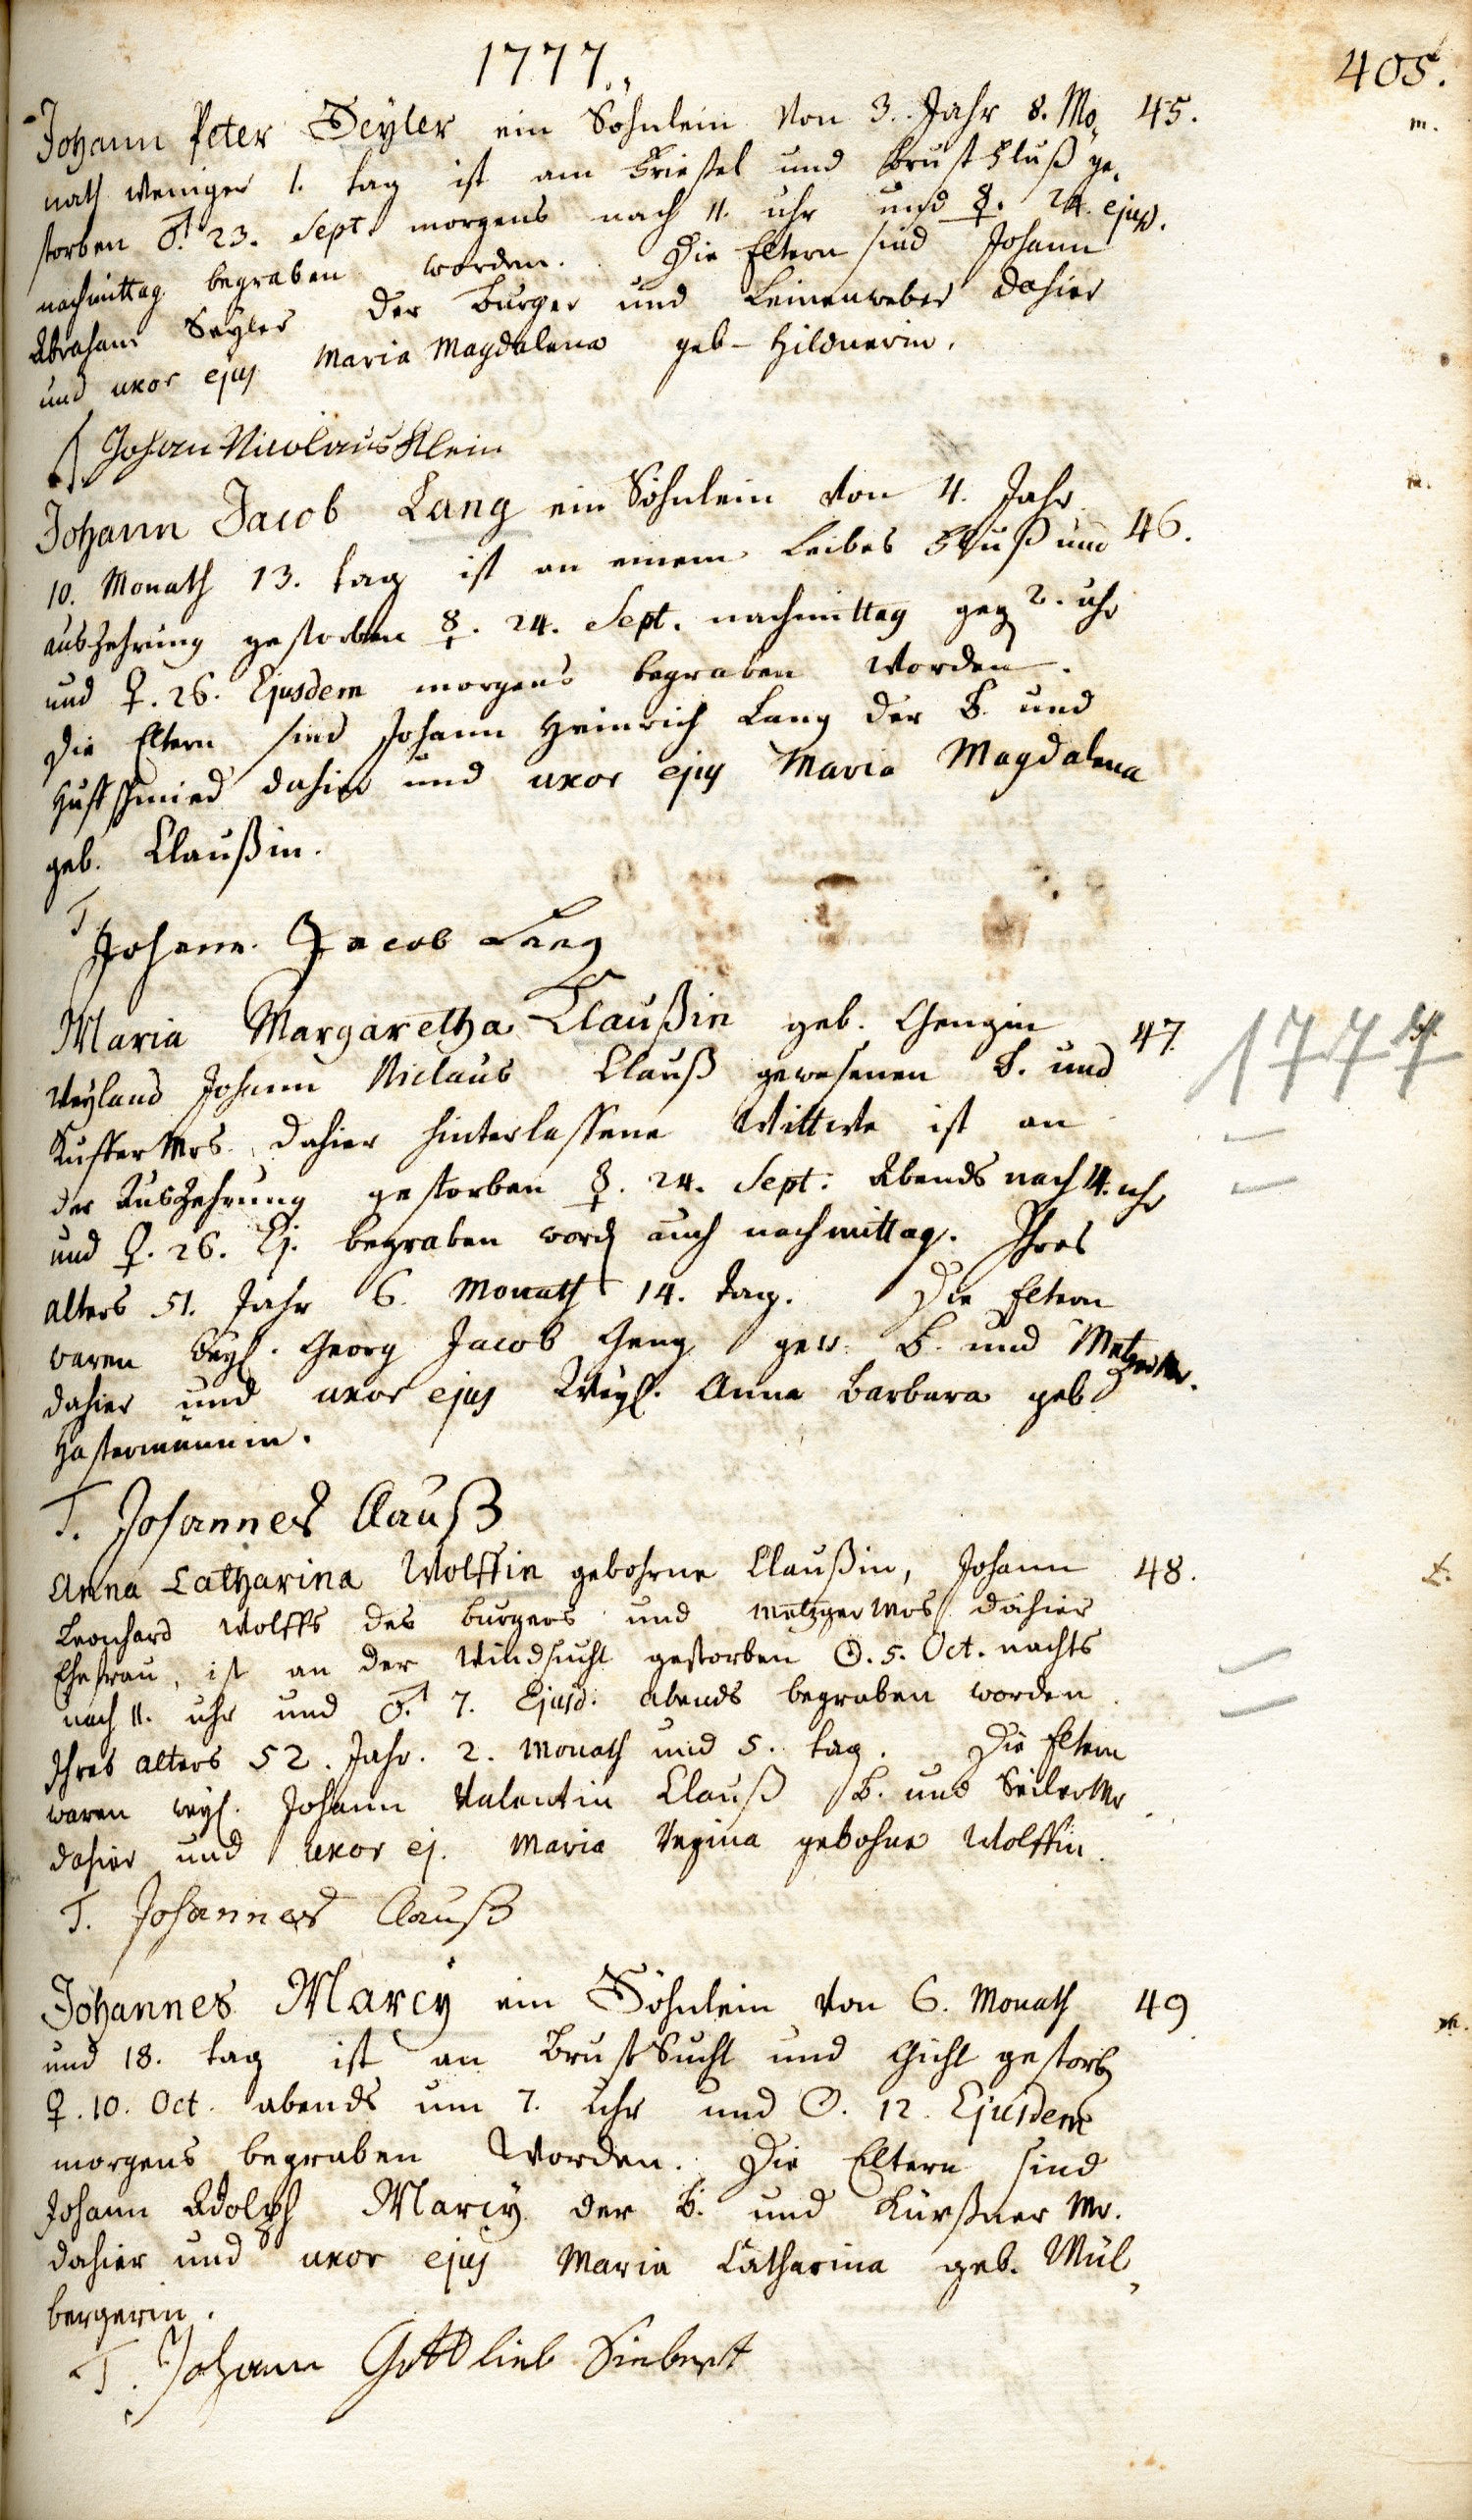 1777.
405.
Johann Peter Seyler ein Söhnlein von 3. Jahr 8. Mo- 45.
m.
nath weniger 1. tag ist am Friesel und Brust Fluß ge-
storben ♂. 23. Sept. morgens nach 11. uhr und ☿. 24. ejusd.
nachmittag begraben worden. Die Eltern sind Johann
Abraham Seyler der Burger und Leinenweber dahier
und uxor ejus Maria Magdalena geb- Hildnerin.
Johan Nicolaus Klein
Johann Jacob Lang ein Söhnlein von 4. Jahr 46.
m.
10. Monath 13. tag ist an einem Leibes Fluß und
auszehrung gestorben ☿. 24. Sept. nachmittag geg 2. uhr
und ♀. 26. Ejusdem morgens begraben worden.
Die Eltern sind Johann Heinrich Lang der B. und
Huffschmied dahier und uxor ejus Maria Magdalena
geb. Claußin.
T Johann Jacob Lang
Maria Margaretha Claußin geb. Gengin 47.
1777
weyland Johann Niclaus Clauß gewesenen B. und
Kuffer Mrs. dahier hinterlassene Wittwe ist an
der Auszehrung gestorben ☿. 24. Sept. Abends nach 4. uhr
und ♀. 26. Ej. begraben word auch nachmittag. Ihres
alters 51. Jahr 6. Monath 14. tag. Die Eltern
waren weyl. Georg Jacob Geng gew. B. und Metzger Mr.
dahier und uxor ejus Weyl. Anna Barbara geb.
Hastermännin.
T. Johannes Clauß
Anna Catharina Wolffin gebohrne Claußin, Johann 48.
t.
Leonhard Wolffs des burgers und Metzger Mrs dahier
Ehefrau, ist an der Windsucht gestorben ☉. 5. Oct. nachts
nach 11. uhr und ♂. 7. Ejusd. abends begraben worden.
Ihres alters 52. Jahr. 2. Monath und 5. tag. Die Eltern
waren weyl. Johann Valentin Clauß B. und Seiler Mr.
dahier und uxor ej. Maria Regina gebohne Wolffin.
T. Johannes Clauß
Johannes Marcy ein Söhnlein von 6. Monath 49
m.
und 18. tag ist an Brust Sucht und Gicht gestorb
♀. 10. Oct. abends um 7. uhr und ☉. 12. Ejusdem
morgens begraben worden. Die Eltern sind
Johann Adolph Marcy der B. und Kürßner Mr.
dahier und uxor ejus Maria Catharina geb. Mül-
bergerin.
T. Johann Gottlieb Siebert